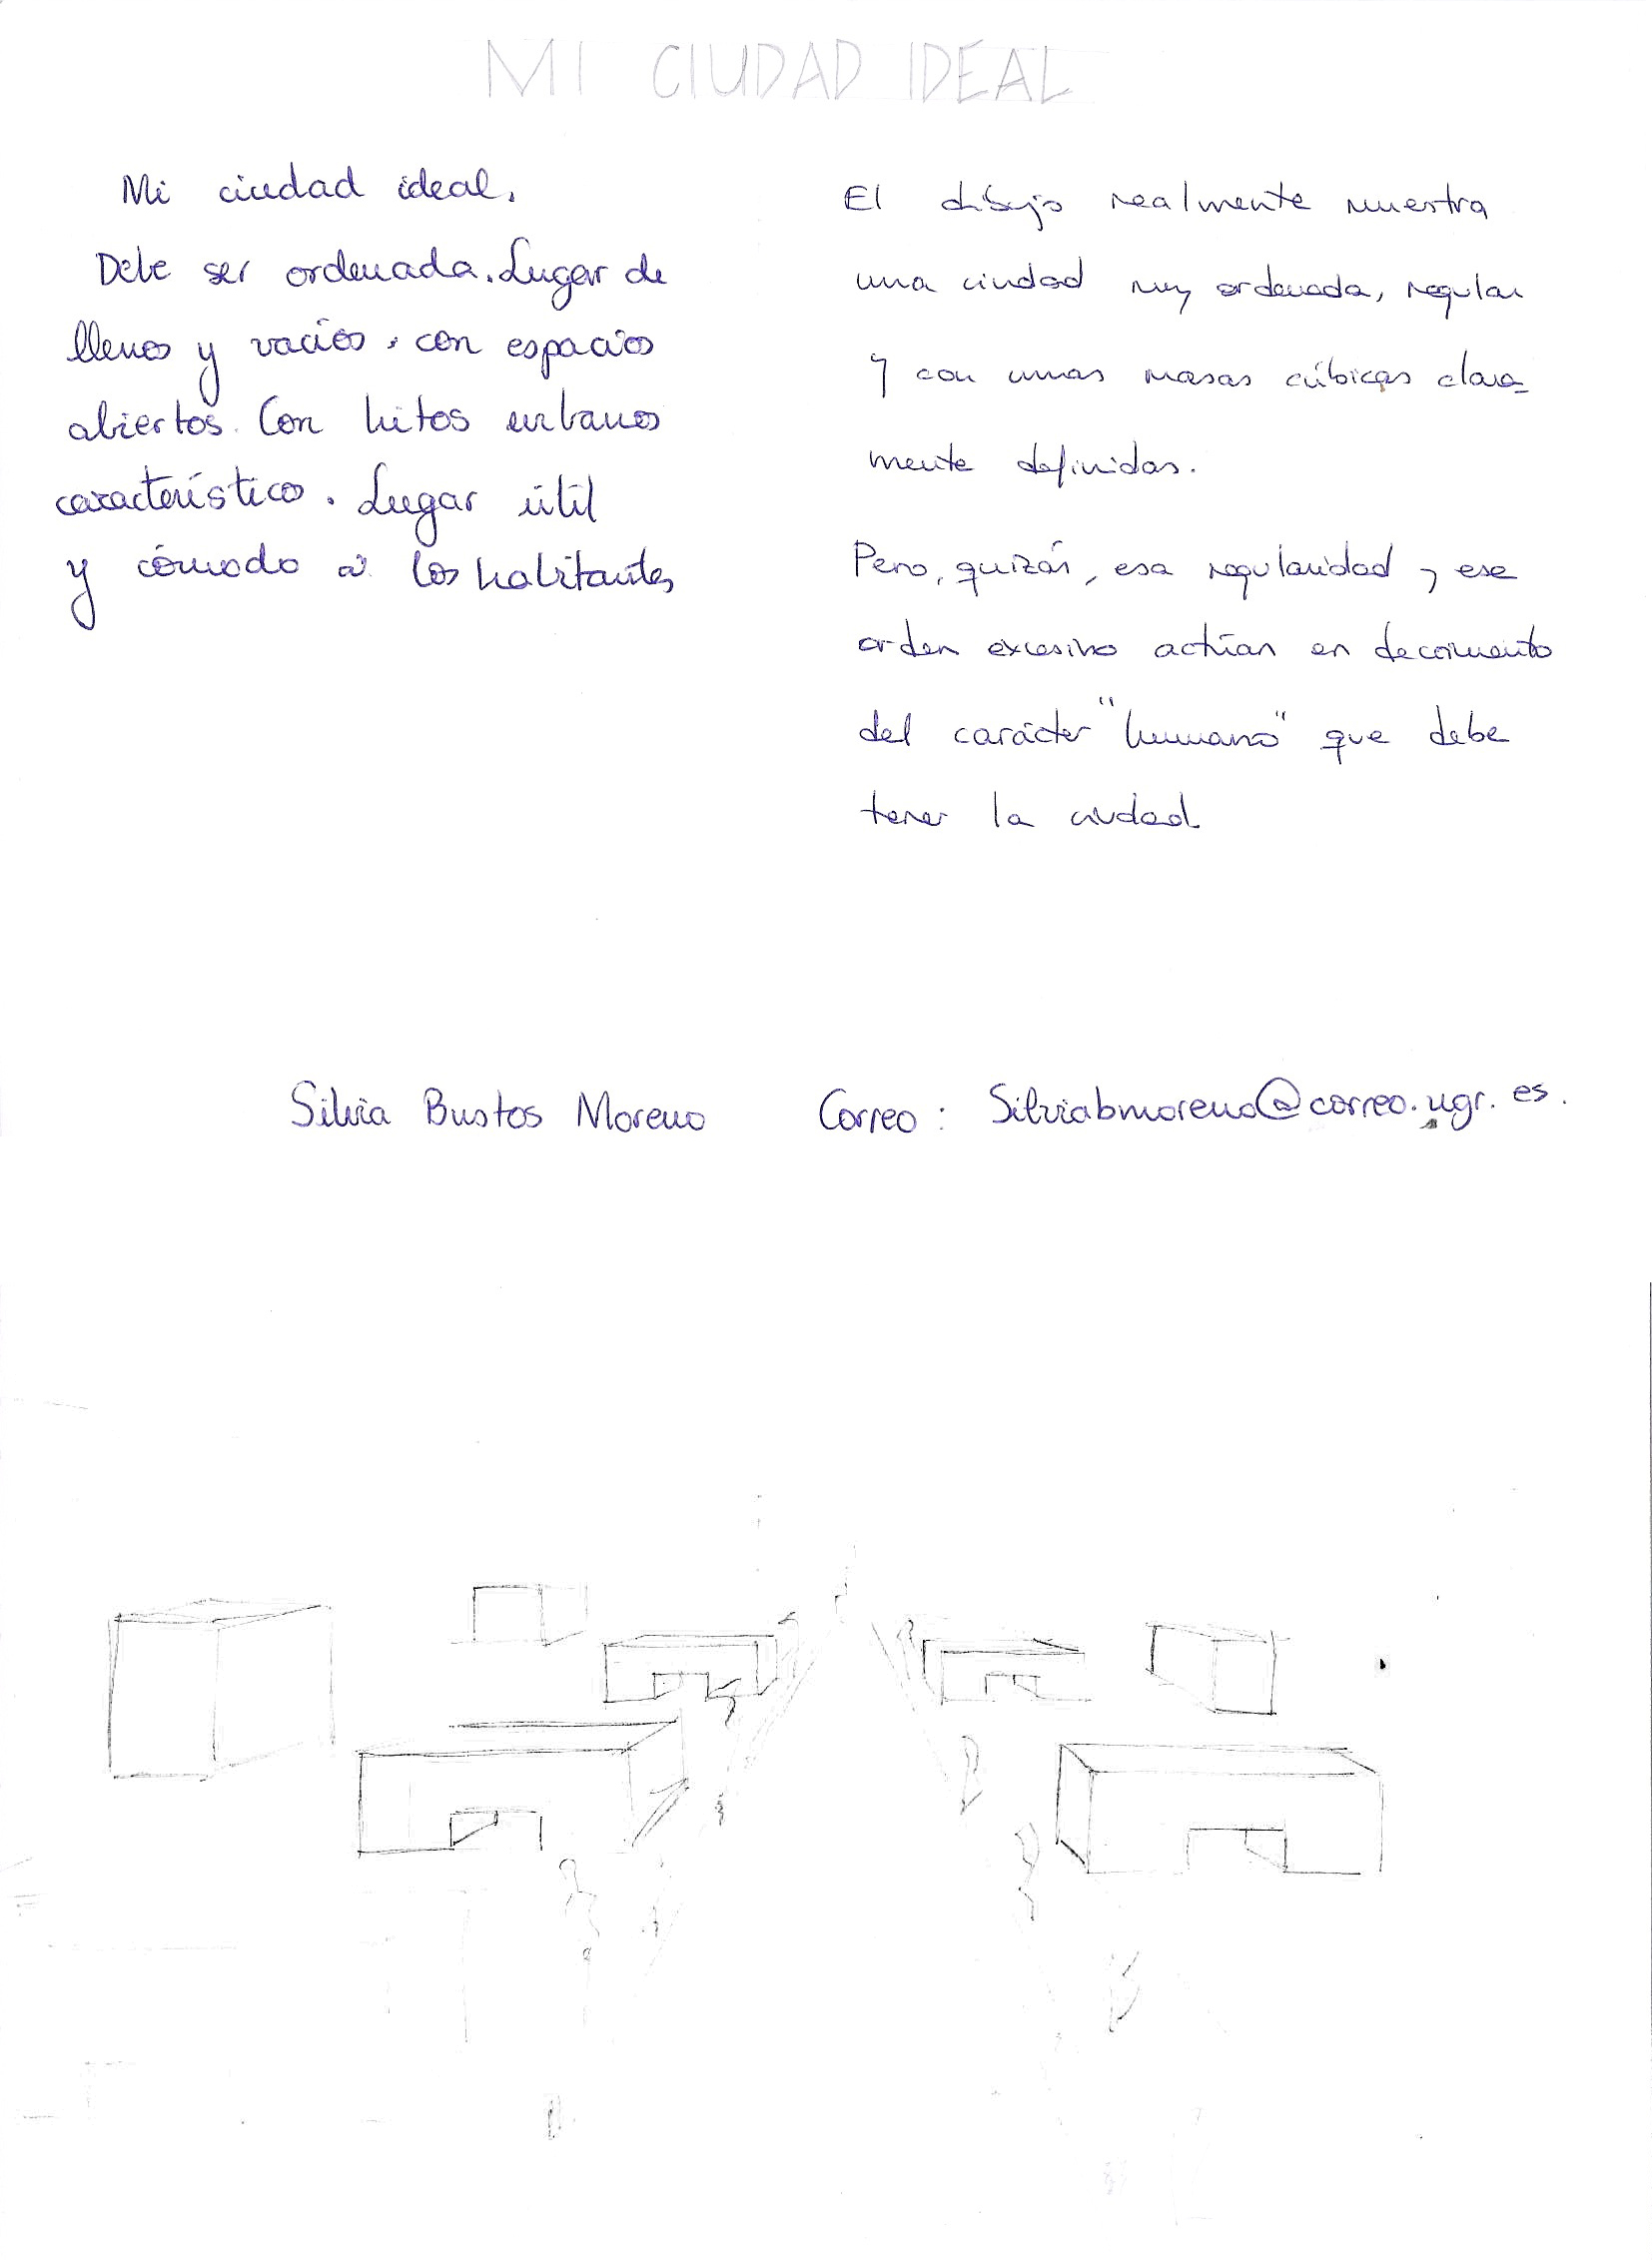 MI CIUDAD IDEAL
Mi ciudad ideal.
Debe ser ordenada. Lugar de
llenos y vacíos, con espacios
abiertos. Con hitos urbanos
característico. Lugar útil
y cómodo a los habitantes
El dibujo realmente muestra
una ciudad muy ordenada, regular
y con unas masas cúbicas clara-
mente definidas.
Pero, quizás, esa regularidad y ese
orden excesivo actúan en decrimento
del carácter "humano" que debe
tener la ciudad
Silvia Bustos Moreno Correo: Silviabmoreno@correo.ugr.es.